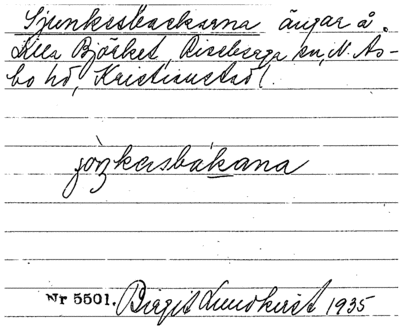 Sjunkesbackarna ängar å
Lilla Björket, Riseberga sn, N. Ås-
bo hd, Kristianstad l.
Nr 5501. Birgit Lundkvist 1935